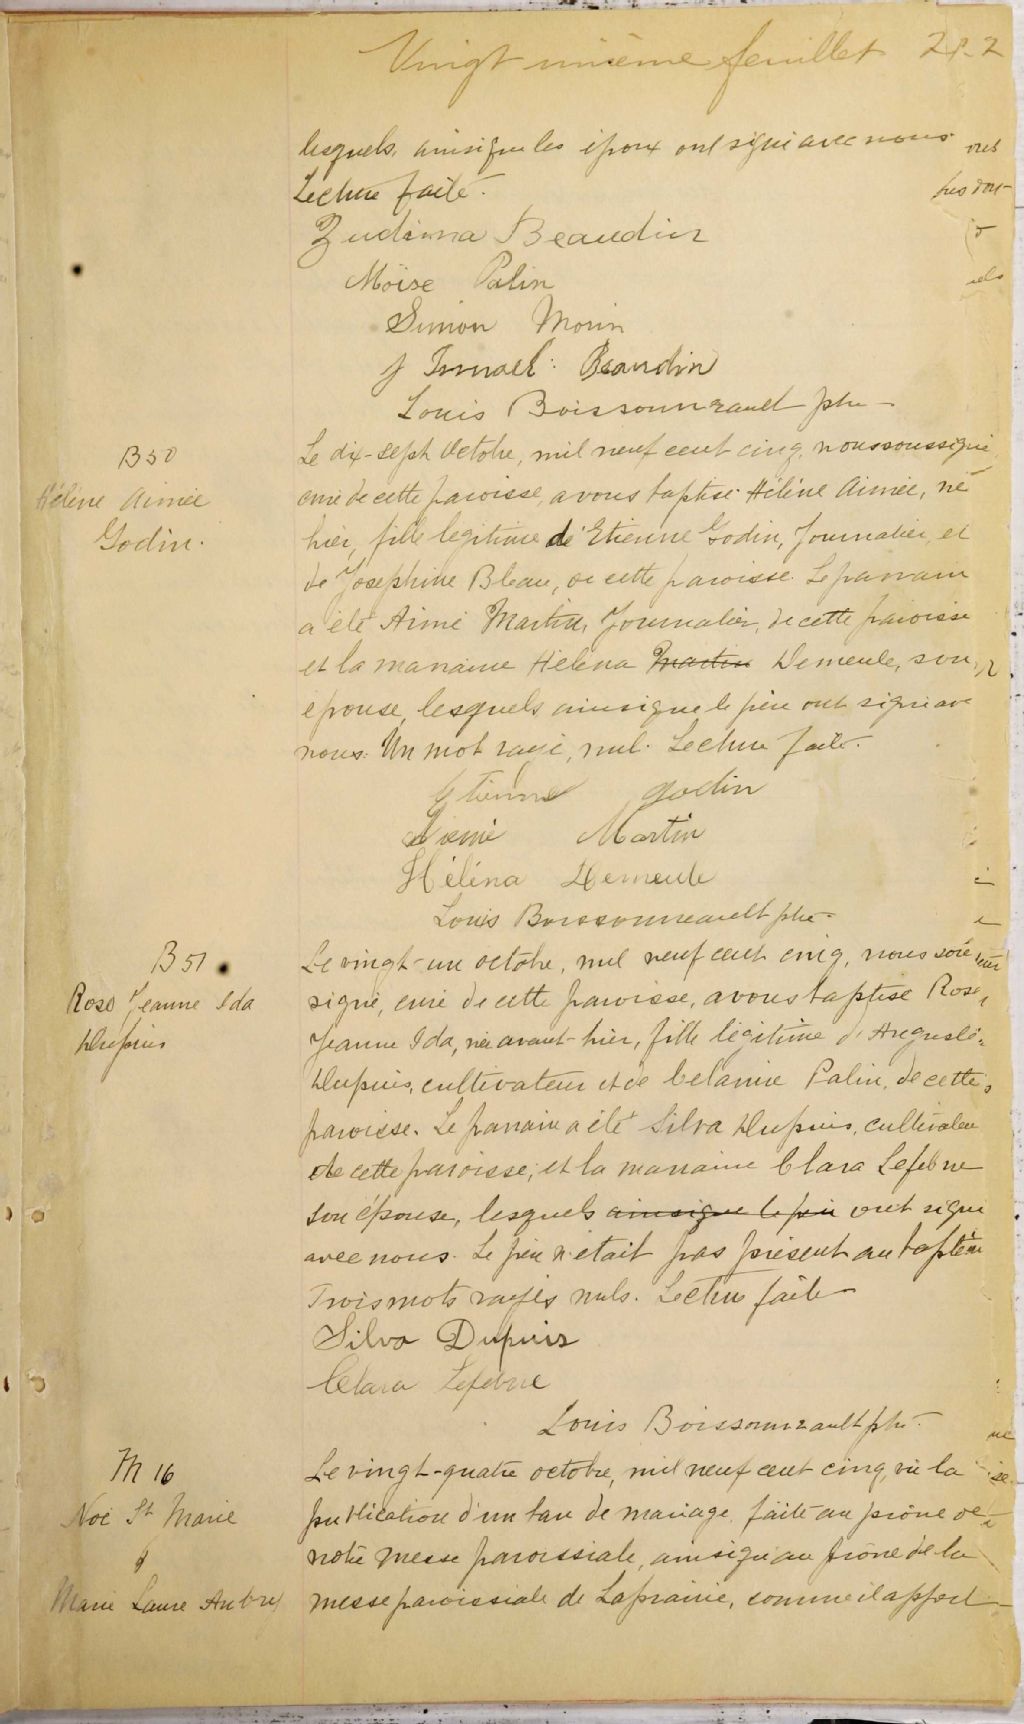 Vingt unième feuillet
lesquels, ainsi que les époux ont signé avec nous
Lecture faite.
Zudima Beaudin
Moïse Palin
Simon Morin
J Ismael Beaudin
Louis Boissonneault ptre
B 50
Hélène Aimée
Godin.
Le dix-sept Octobre, mil neuf cent cinq, nous soussigné,
curé de cette paroisse, avons baptisé Hélène Aimée, né
hier, fille légitime de Etienne Godin, Journalier, et
de Joséphine Bleau, de cette paroisse. Le parrain
a été Aimé Martin, Journalier, de cette paroisse
et la marraine Héléna Martin Demeule, son
épouse, lesquels ainsi que le père ont signé av
nous. Un mot rayé, nul. Lecture faite.
Etienne Godin
Aimé Martin
Héléna Demeule
Louis Boissonneault ptre
B 51
Rose Jeanne Ida
Dupuis
Le vingt-un octobre, mil neuf cent cinq, nous sous
signé, curé de cette paroisse, avons baptisé Rose
Jeanne Ida, née avant-hier, fille légitime d'Auguste
Dupuis, cultivateur et de Célanire Palin, de cette
paroisse. Le parrain a été Silva Dupuis, cultivateu
de cette paroisse, et la marraine Clara Lefebvre
son épouse, lesquels ainsi que le père ont signé
avec nous. Le père n'était pas présent au baptême
Trois mots rayés nuls. Lecture faite
Silva Dupuis
Clara Lefebvre
Louis Boissonneault ptre.
M 16
Noé St Marie
&
Marie Laure Aubry
Le vingt-quatre octobre, mil neuf cent cinq, vu la
publication d'un ban de mariage faite au prône de
notre messe paroissiale, ainsi qu'au prône de la
messe paroissiale de Laprairie, comme il appert